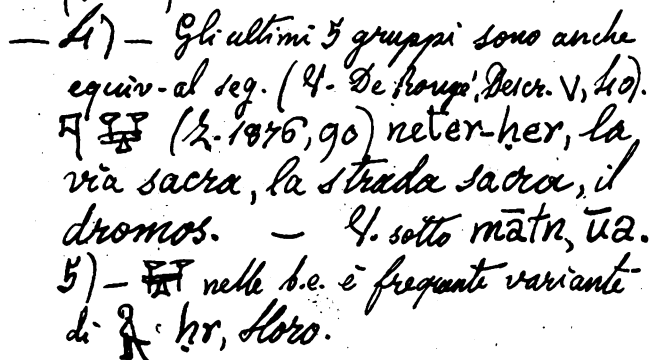 — 4) — Gli ultimi 5 gruppi sono anche
equiv. al seg. (V. De Rougé, Descr. V, 40).
(Z. 1876, 90) neter-ḥer, la
via sacra, la strada sacra, il
dromos. — V. sotto mātn, ūa.
5) — nelle b.e. è frequente variante
di ḥr, Horo.